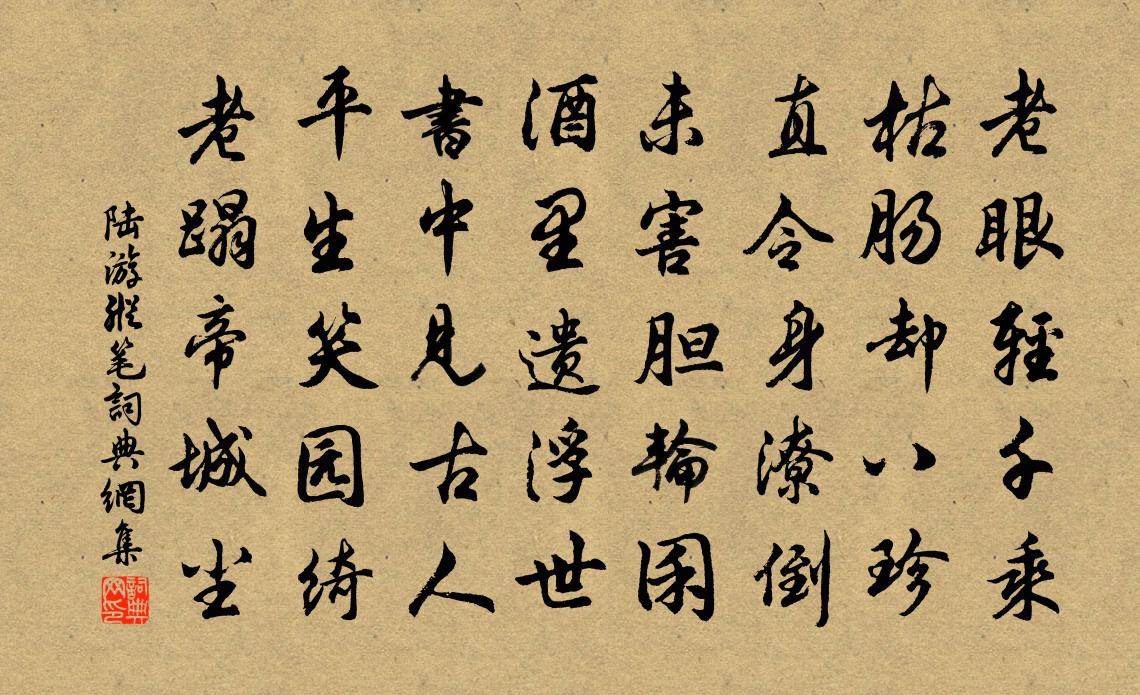 老眼輕千乘
枯肠却八珍
直令身潦倒
未害胆輪囷
酒里遗浮世
書中見古人
平生笑园绮
老蹋帝城尘
陆游縱笔詞典網集
詞典网印